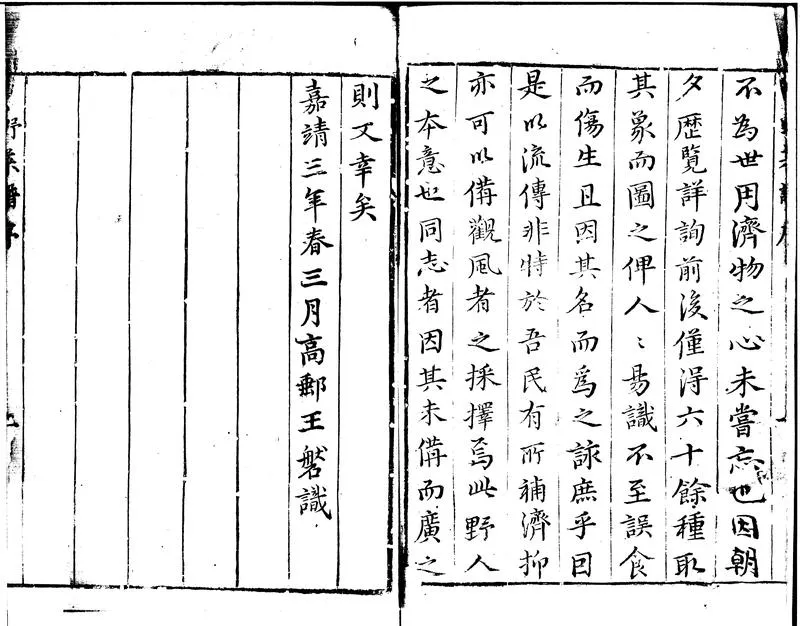 不為世用濟物之心未嘗忘也因朝
夕歷覽詳詢前後僅得六十餘種取
其象而圖之俾人〻易識不至誤食
而傷生且因其名而為之詠庶乎因
是以流傳非特於吾民有所補濟抑
亦可以備觀風者之採擇焉此野人
之本意也同志者因其未備而廣之
則又幸矣
嘉靖三年春三月高郵王磐識
野菜譜序